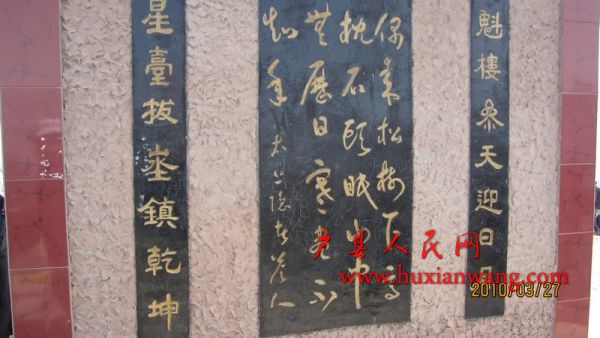 魁樓叅天迎日
偶來松樹下高
枕石頭眠山中
無歷日寒盡不
知年 太上隱者答人
星臺拔埊鎮乾坤
户县人民网
www.huxianwang.com
2010/03/27